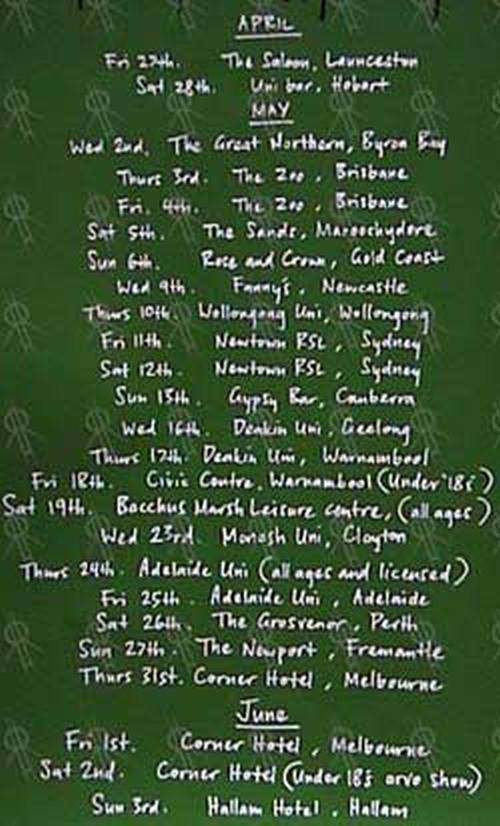 APRIL
Fri 27th. The Saloon, Launceston
Sat 28th. Uni bar, Hobart
MAY
Wed 2nd. The Great Northern, Byron Bay
Thurs 3rd. The Zoo, Brisbane
Fri. 4th. The Zoo, Brisbane
Sat 5th. The Sands, Maroochydore
Sun 6th. Rose and Crown, Gold Coast
Wed 9th. Fanny's, Newcastle
Thurs 10th. Wollongong Uni, Wollongong
Fri 11th. Newtown RSL, Sydney
Sat 12th. Newtown RSL, Sydney
Sun 13th. Gypsy Bar, Canberra
Wed 16th. Deakin Uni, Geelong
Thurs 17th. Deakin Uni, Warnambool
Fri 18th. Civic Centre, Warnambool (Under 18s)
Sat 19th. Bacchus Marsh Leisure Centre, (all ages)
Wed 23rd. Monash Uni, Clayton
Thurs 24th. Adelaide Uni (all ages and licensed)
Fri 25th. Adelaide Uni, Adelaide
Sat 26th. The Grosvenor, Perth
Sun 27th. The Newport, Fremantle
Thurs 31st. Corner Hotel, Melbourne
June
Fri 1st. Corner Hotel, Melbourne
Sat 2nd. Corner Hotel (Under 18s arvo show)
Sun 3rd. Hallam Hotel, Hallam